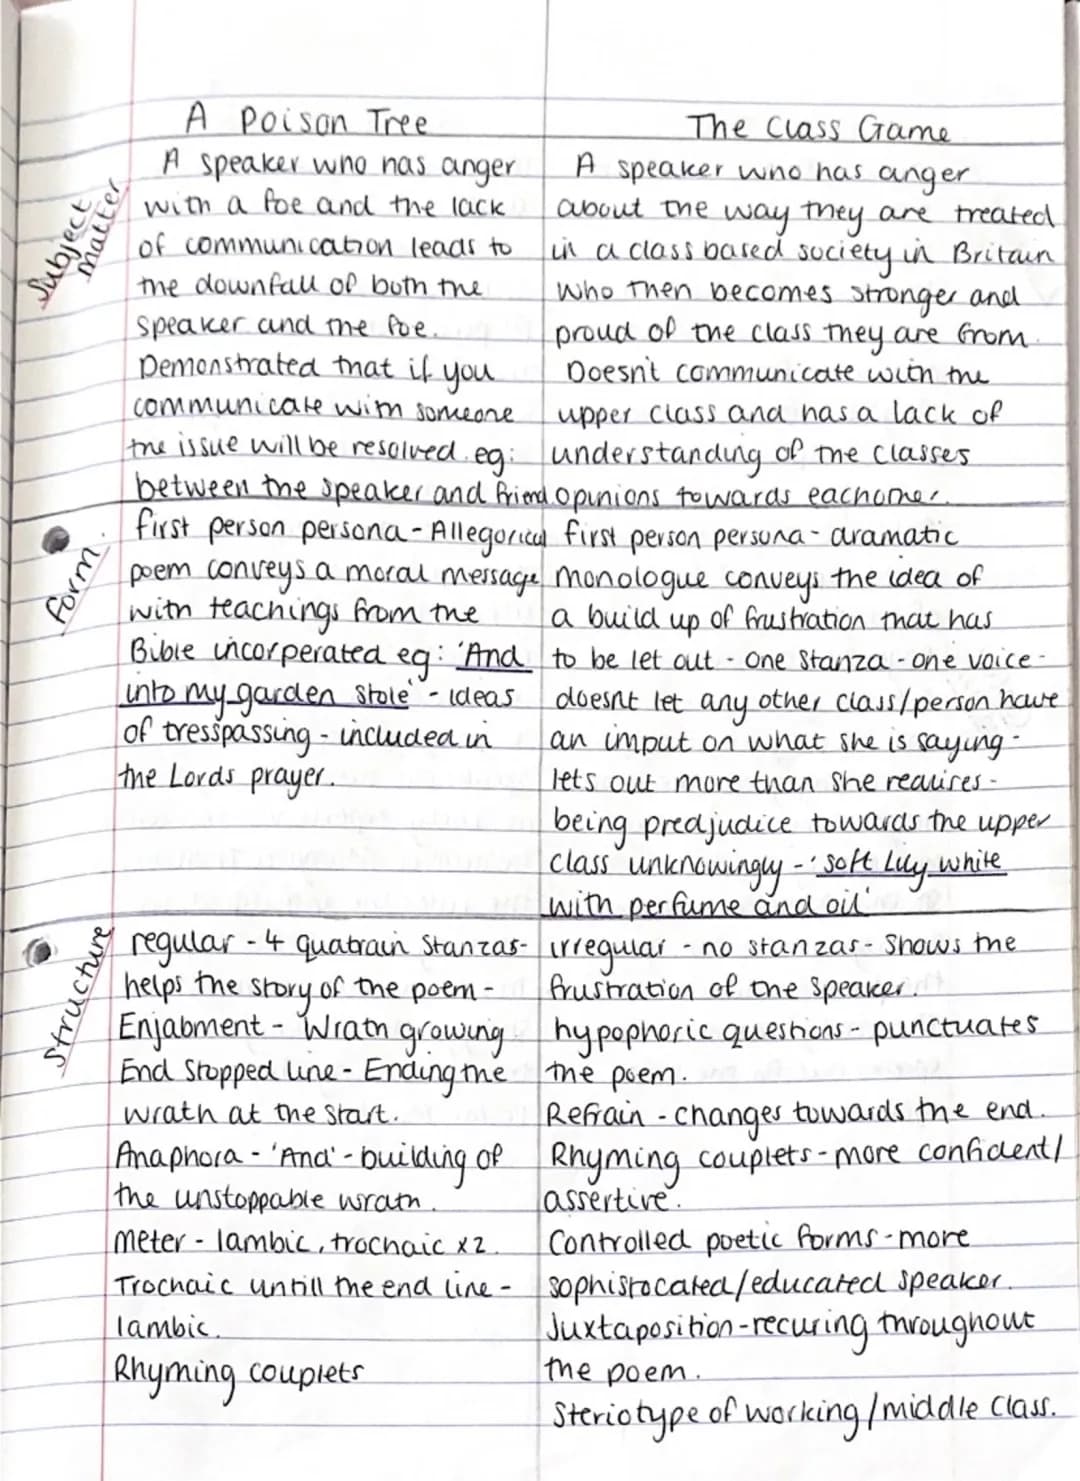 A Poison Tree
Subject matter
A speaker who has anger
with a foe and the lack
of communication leads to
the downfall of both the
speaker and the foe.
Demonstrated that if you
communicate with someone
the issue will be resolved. eg:
between the speaker and friend
Form.
first person persona - Allegorical
poem conveys a moral message
with teachings from the
Bible incorperated eg: 'And
into my garden stole' - ideas
of tresspassing - included in
the Lords prayer.
Structure
regular - 4 quatrain stanzas-
helps the story of the poem -
Enjabment - Wrath growing
End Stopped line - Ending the
wrath at the start.
Anaphora - 'And' - building of
the unstoppable wrath.
meter - Iambic, trochaic x2.
Trochaic untill the end line -
Iambic.
Rhyming couplets
The Class Game
A speaker who has anger
about the way they are treated
in a class based society in Britain
who then becomes stronger and
proud of the class they are from.
Doesn't communicate with the
upper class and has a lack of
understanding of the classes
opinions towards eachother.
first person persona - dramatic
monologue conveys the idea of
a build up of frustration that has
to be let out - one stanza - one voice -
doesnt let any other class/person have
an imput on what she is saying -
lets out more than she realires -
being predjudice towards the upper
class unknowingly - 'soft lily white
with perfume and oil'
irregular - no stanzas - shows the
frustration of the speaker.
hypophoric questions - punctuates
the poem.
Refrain - changes towards the end.
Rhyming couplets - more confident/
assertive.
Controlled poetic forms - more
sophistocated/educated speaker.
Juxtaposition - recuring throughout
the poem.
Steriotype of working/middle class.